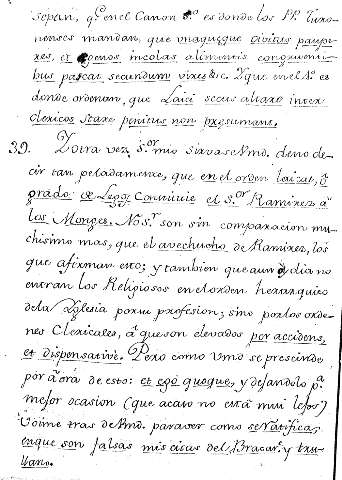 septui, q. en el Canon 5.º es donde los PP. Turo-
nenses mandan, que unaquæque civitas paupe-
res, et egenos incolas alimentis congruenti-
bus pascat secundum vires &c. Y que en el 4.º es
donde ordenan, que Laici secus altare inter
clericos stare penitus non præsumant.
39. Y otra vez, S.or mio sirvase Vmd. de no de-
cir tan peladamente, que en el orden laical, ó
grado de Lego Convinie el S.or Ramirez á
los Monges. No S.r son sin comparacion mu-
chisimo mas, que el avechucho de Ramirez, los
que afirman esto; y tambien que aun oy dia no
entran los Religiosos en el orden hierarquico
de la Yglesia por su profesion; sino por los orde-
nes Clericales, á que son elevados per accidens,
et dispensative. Pero como Vmd se prescinde
por aóra de esto: et ego quoque, y dejandolo p.a
mejor ocasion (que acaso no está mui lejos)
Voime tras de Vmd. para ver como se ratifica,
en que son falsas mis cisas del Bracar.e y tru-